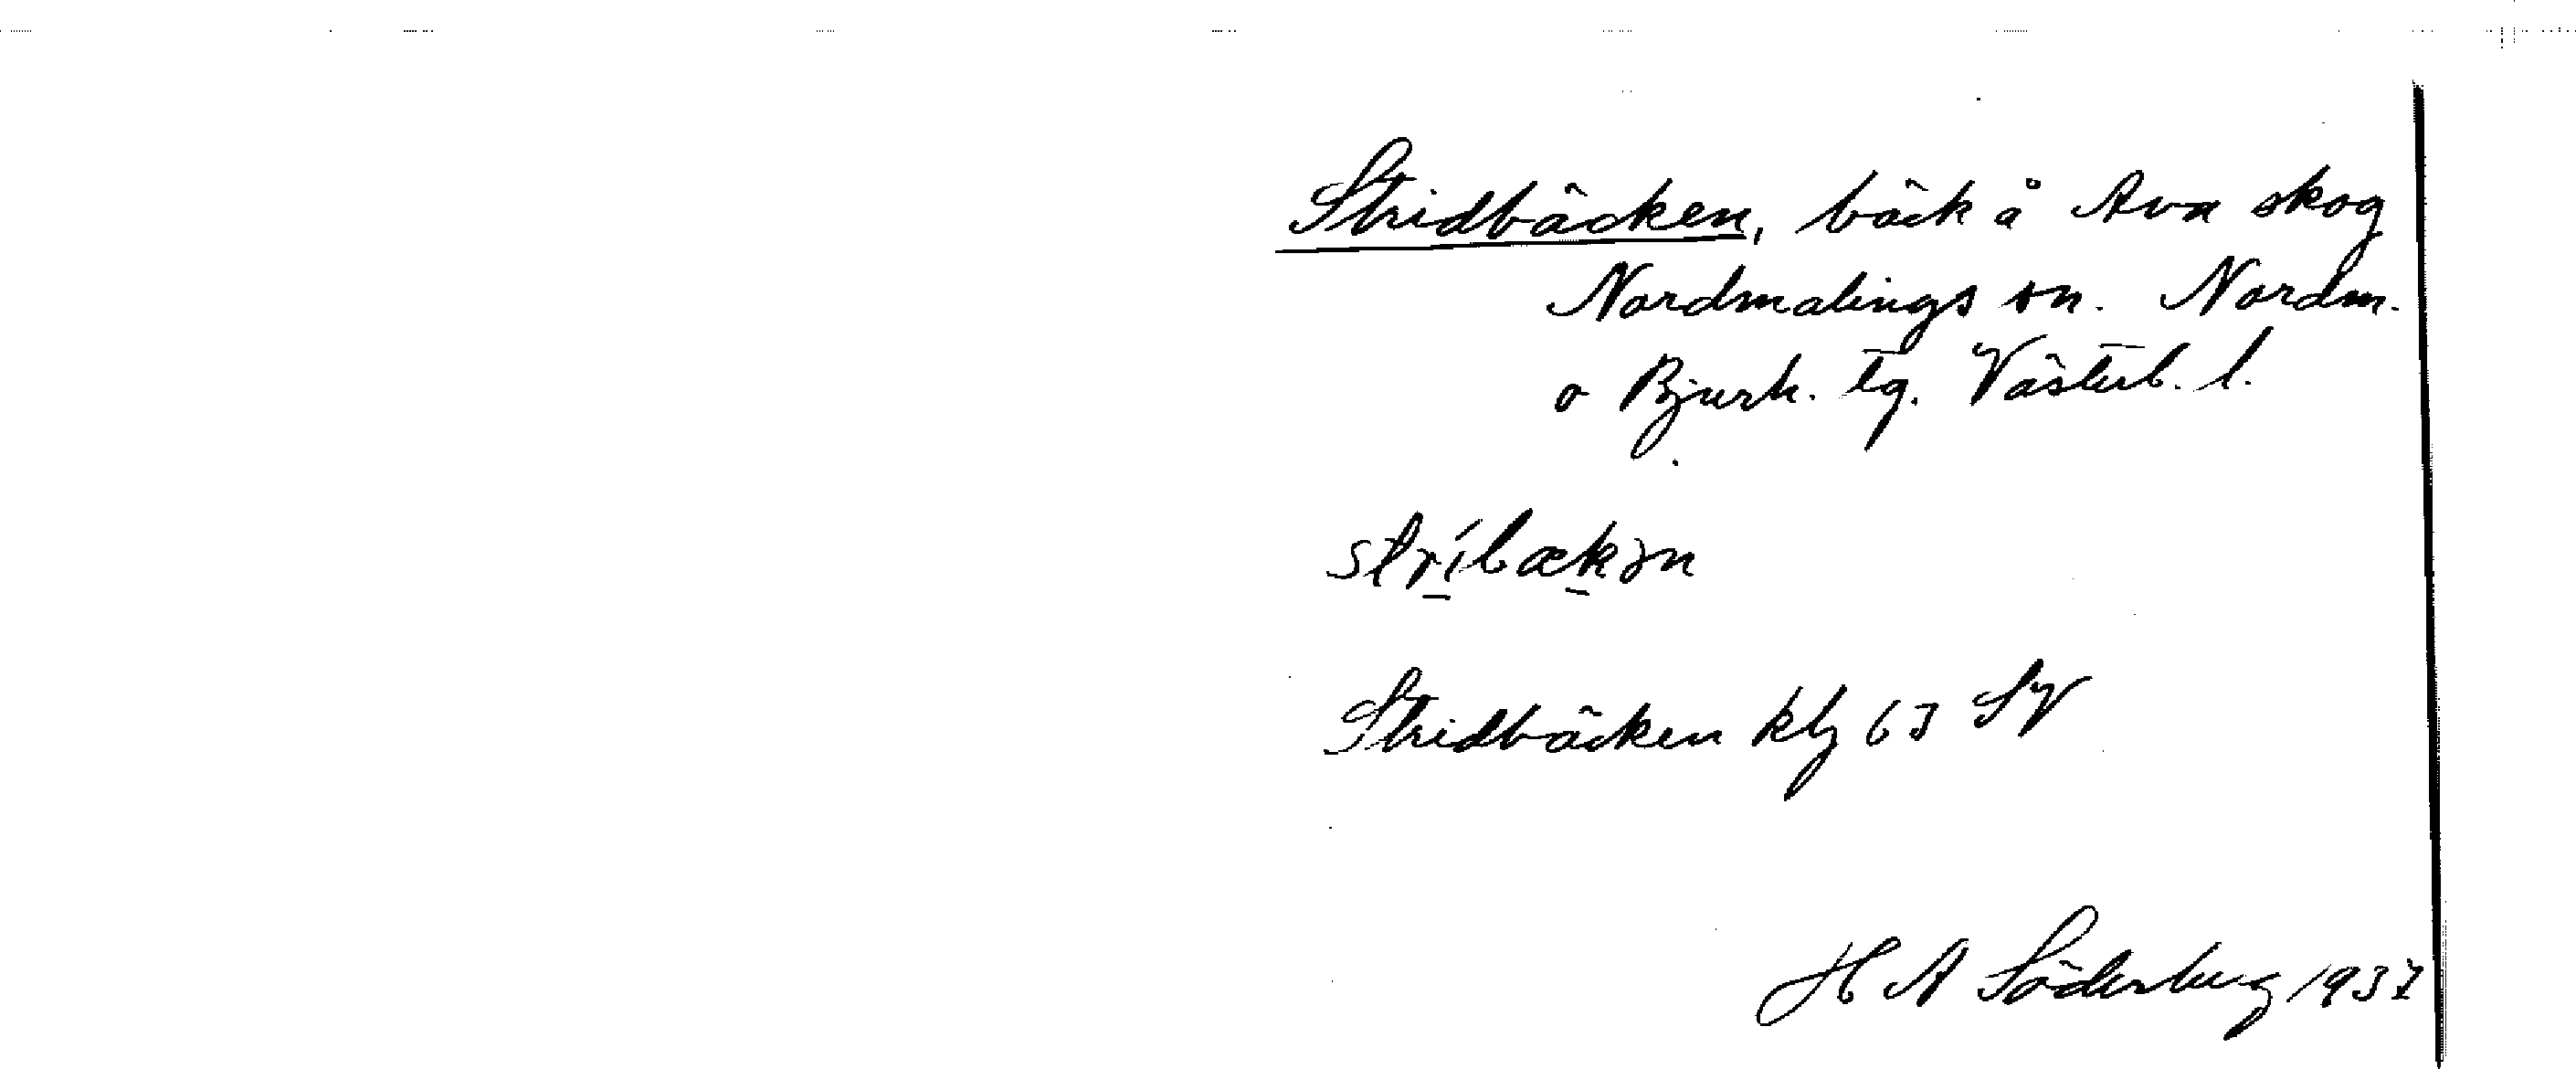 Stridbäcken, bäck å Ava skog
Nordmalings sn. Nordm.
o Bjurh. tg. Västerb. l.
stríbækən
Stridbäcken kbl 63 SV
H A Söderberg 1937